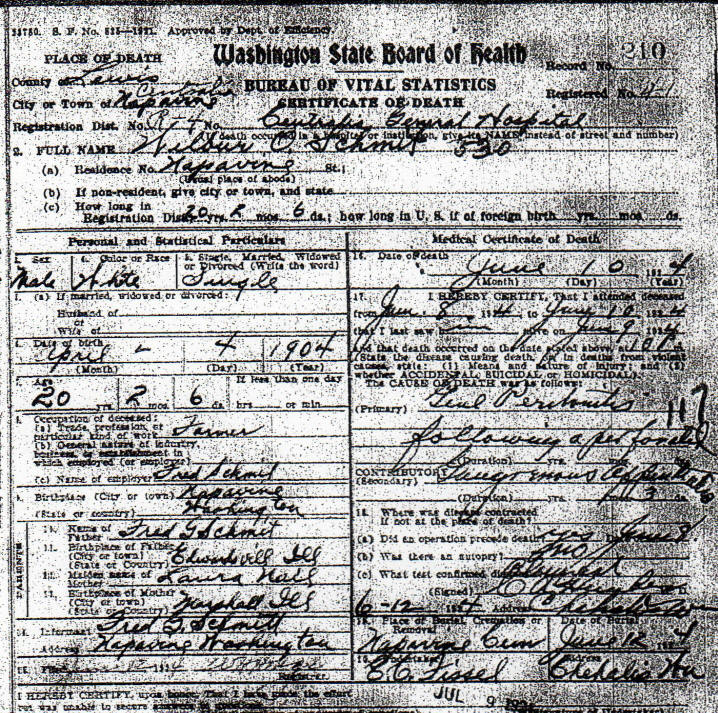 35750. S. F. No. 525—1921. Approved by Dept. of Efficiency.
PLACE OF DEATH
Washington State Board of Health
Record No. 210
County of Lewis
BUREAU OF VITAL STATISTICS
Registered No.
City or Town of Centralia Napavine
CERTIFICATE OF DEATH
Registration Dist. No. Centralia General Hospital
(If death occurred in a hospital or institution, give its NAME instead of street and number)
2. FULL NAME Wilbur O. Schmit 530
(a) Residence No. Napavine St.;
(Usual place of abode)
(b) If non-resident, give city or town, and state
(c) How long in
Registration Dist. 20 yrs. 2 mos. 6 ds.; how long in U. S. if of foreign birth yrs. mos. ds.
Personal and Statistical Particulars
Sex
Male
4. Color or Race
White
5. Single, Married, Widowed
or Divorced (Write the word)
Single
(a) If married, widowed or divorced:
Husband of
or
Wife of
Date of birth
April 4 1904
(Month) (Day) (Year)
Age
If less than one day
20 yrs. 2 mos. 6 ds. hrs. or min.
Occupation of deceased:
(a) Trade, profession or
particular kind of work Farmer
(b) General nature of industry,
business, or establishment in
which employed (or employer)
(c) Name of employer Fred Schmit
Birthplace (City or town) Napavine
(State or country) Washington
PARENTS
10. Name of
Father Fred G Schmit
11. Birthplace of Father
(City or town)
(State or Country) Edwardsvill Ill
12. Maiden name of
Mother Laura Hall
13. Birthplace of Mother
(City or town)
(State or Country) Marshall Ill
14. Informant Fred G Schmitt
Address Napavine Washington
15. Filed
Registrar.
Medical Certificate of Death
16. Date of death
June 10 1924
(Month) (Day) (Year)
17. I HEREBY CERTIFY, That I attended deceased
from June 8 1924 to June 10 1924
that I last saw him alive on June 9 1924
and that death occurred on the date stated above, at
(State the disease causing death, or in deaths from violent
causes, state: (1) Means and nature of injury; and (2)
whether ACCIDENTAL, SUICIDAL or HOMICIDAL).
The CAUSE OF DEATH was as follows:
(Primary) Peritonitis
117
following a perforated
(Duration) yrs.
CONTRIBUTORY Gangrenous Appendicitis
(Secondary)
(Duration) yrs. 3 ds.
18. Where was disease contracted
if not at the place of death?
(a) Did an operation precede death? yes June 8
(b) Was there an autopsy? no
(c) What test confirmed diagnosis? Clinical
(Signed)
6-12 1924 Address Chehalis
19. Place of Burial, Cremation or
Removal
Date of Burial
Napavine Cem June 12 1924
20. Undertaker
Address
E. C. Fissel Chehalis Wn
I HEREBY CERTIFY, upon honor, That I have made the effort
but was unable to secure
JUL 9 1924